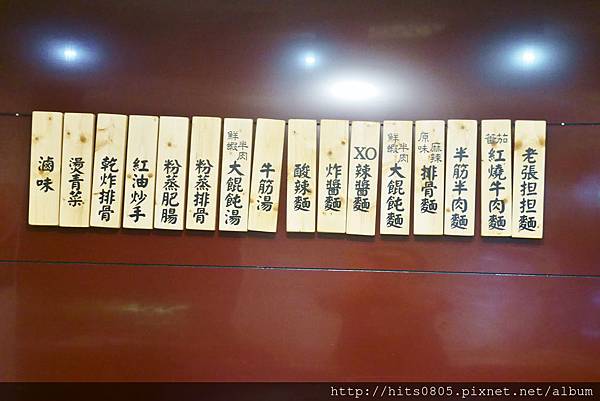 老張担担麵
番茄紅燒牛肉麵
半筋半肉麵
原味麻辣排骨麵
鮮蝦半肉大餛飩麵
XO辣醬麵
炸醬麵
酸辣麵
牛筋湯
鮮蝦半肉大餛飩湯
粉蒸排骨
粉蒸肥腸
紅油炒手
乾炸排骨
燙青菜
滷味
http://hits0805.pixnet.net/album